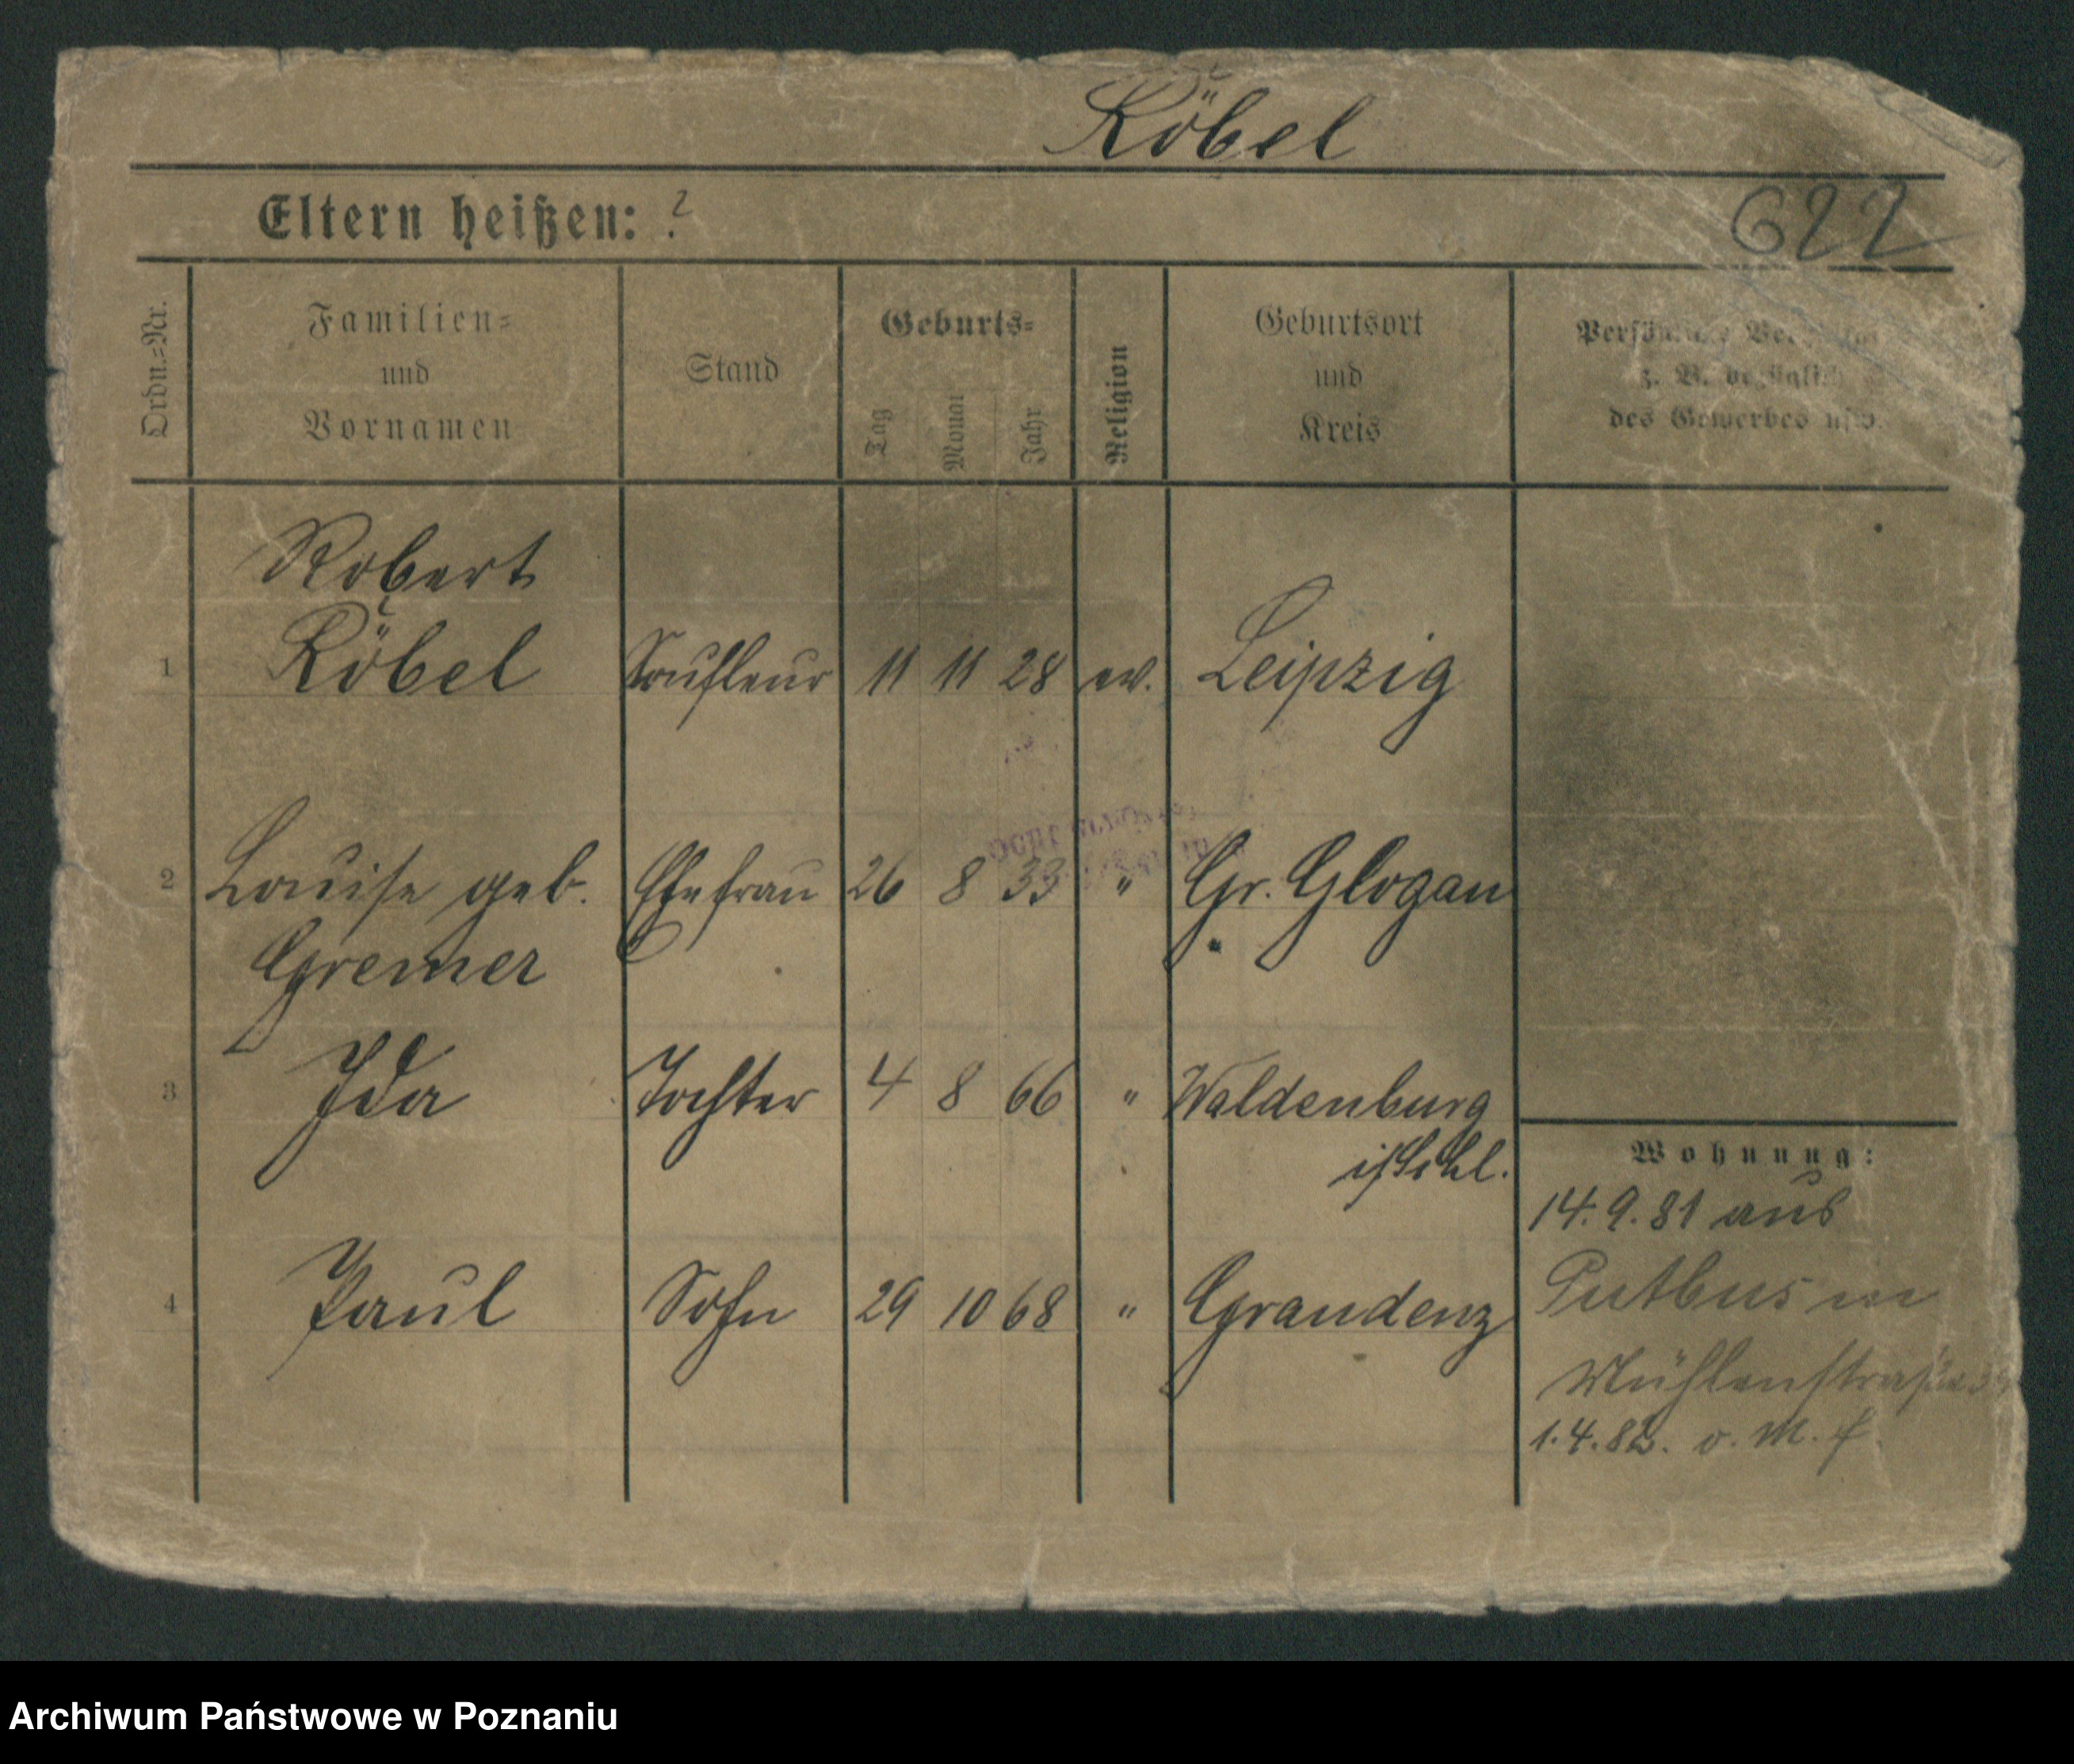 Röbel
Eltern heißen: ?
622
Ordn.=Nr.
Familien=
und
Vornamen
Stand
Geburts=
Tag
Monat
Jahr
Religion
Geburtsort
und
Kreis
z. B. bezüglich
des Gewerbes usw.
Robert
1 Röbel Soufleur 11 11 28 ev. Leipzig
2 Louise geb. Ehefrau 26 8 33 " Gr. Glogau
Gremer
3 Ida Tochter 4 8 66 " Waldenburg
i/Schl.
4 Paul Sohn 29 10 68 " Graudenz
Wohnung:
14.9.81 aus
Putbus
Mühlenstraße
1.4.82. v. M. f.
Archiwum Państwowe w Poznaniu